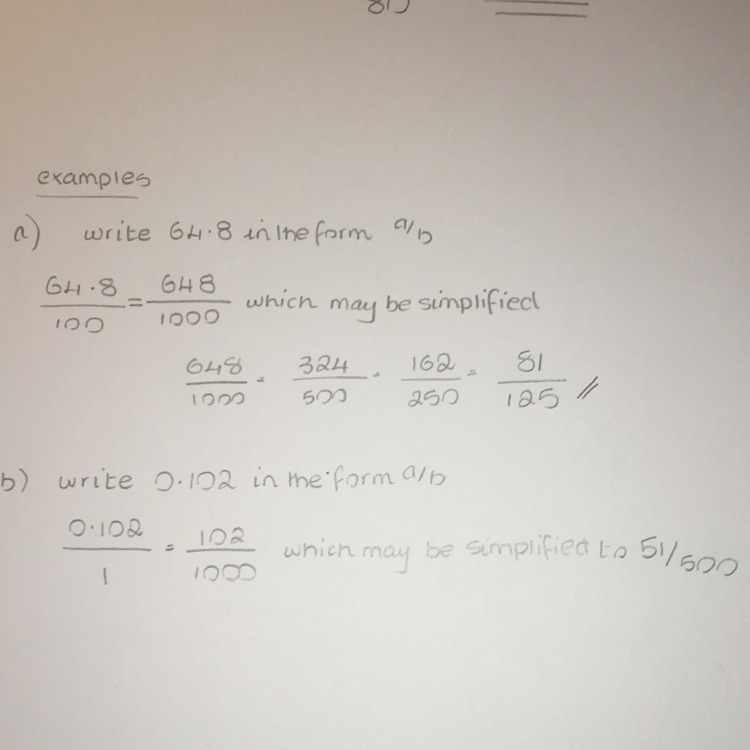 examples
a) write 64.8 in the form a/b
64.8/100 = 648/1000 which may be simplified
648/1000 = 324/500 = 162/250 = 81/125 //
b) write 0.102 in the form a/b
0.102/1 = 102/1000 which may be simplified to 51/500